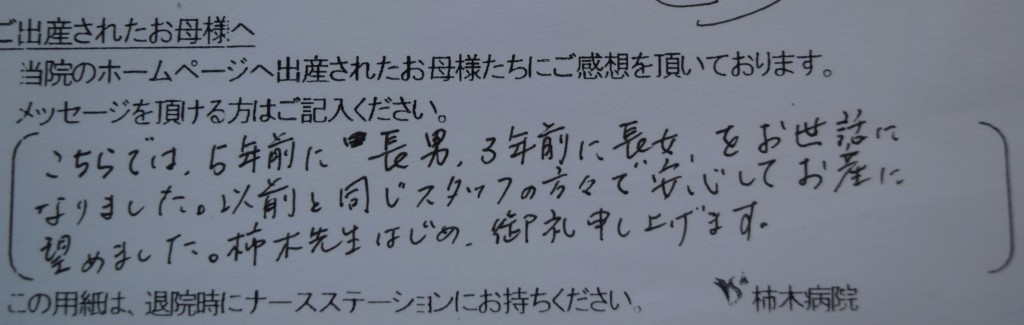 ご出産されたお母様へ
当院のホームページへ出産されたお母様たちにご感想を頂いております。
メッセージを頂ける方はご記入ください。
こちらでは、5年前に長男、3年前に長女、をお世話に
なりました。以前と同じスタッフの方々で安心してお産に
望めました。柿木先生はじめ、御礼申し上げます。
この用紙は、退院時にナースステーションにお持ちください。
柿木病院